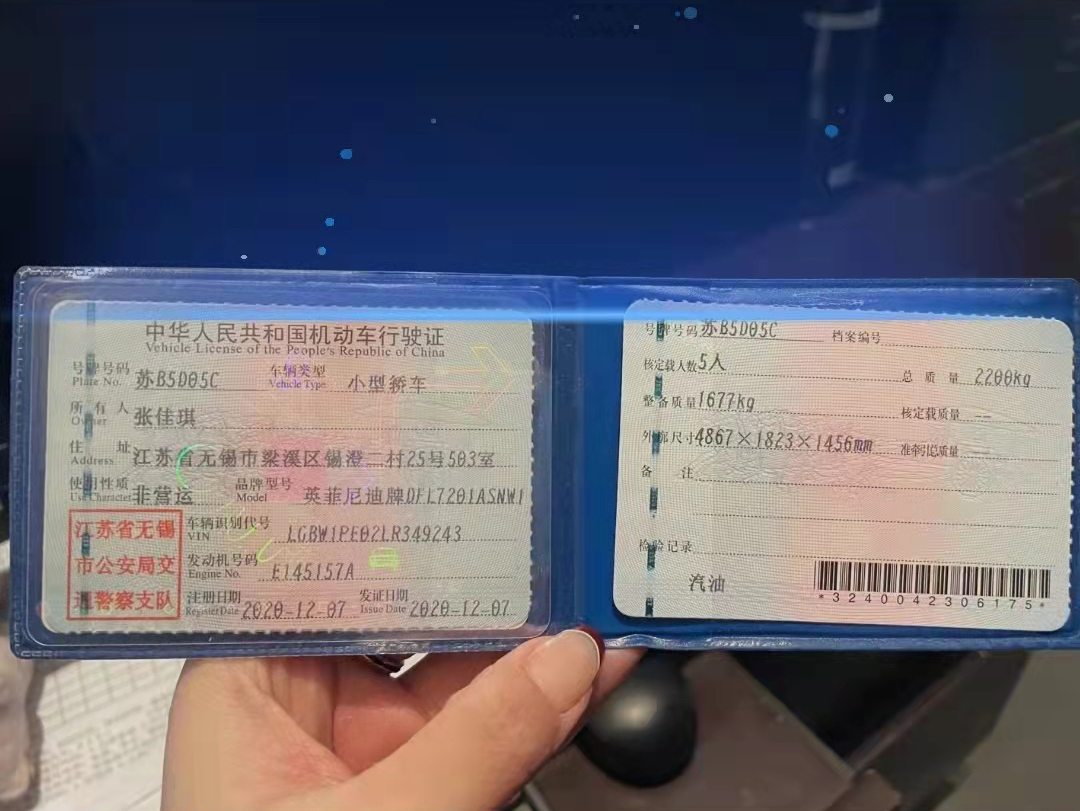 中华人民共和国机动车行驶证
Vehicle License of the People's Republic of China
号牌号码 苏B5D05C 车辆类型 小型轿车
Plate No. Vehicle Type
所有人 张佳琪
Owner
住址 江苏省无锡市梁溪区锡澄二村25号503室
Address
使用性质 非营运 品牌型号 英菲尼迪牌DFL7201ASNW1
Use Character Model
江苏省无锡
市公安局交
通警察支队
车辆识别代号 LGBW1PE02LR349243
VIN
发动机号码 E145157A
Engine No.
注册日期 2020-12-07 发证日期 2020-12-07
Register Date Issue Date
号牌号码 苏B5D05C 档案编号
核定载人数 5人 总质量 2200kg
整备质量 1677kg 核定载质量 --
外廓尺寸 4867×1823×1456mm 准牵引总质量 --
备注
检验记录
汽油
*3240042306175*